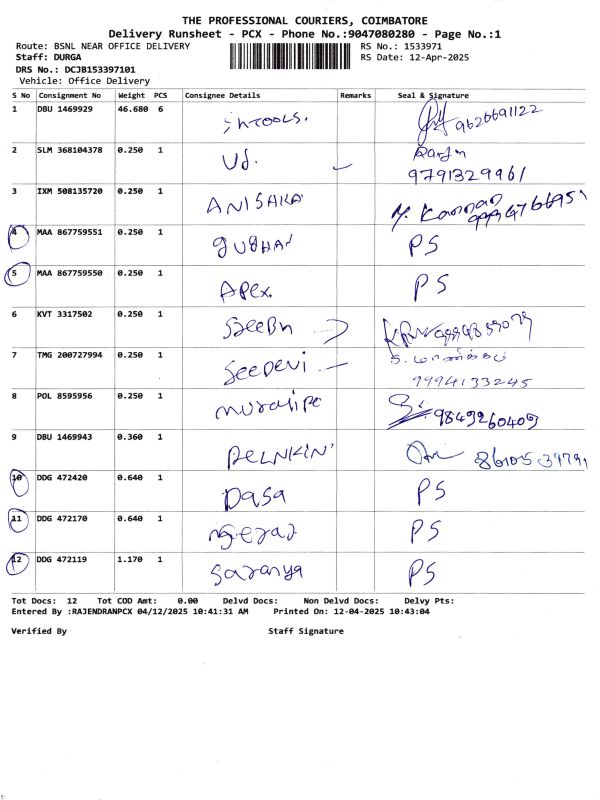 THE PROFESSIONAL COURIERS, COIMBATORE
Delivery Runsheet - PCX - Phone No.:9047080280 - Page No.:1
Route: BSNL NEAR OFFICE DELIVERY RS No.: 1533971
Staff: DURGA RS Date: 12-Apr-2025
DRS No.: DCJB153397101
Vehicle: Office Delivery
S No Consignment No Weight PCS Consignee Details Remarks Seal & Signature
1 DBU 1469929 46.680 6 9626691122
2 SLM 368104378 0.250 1 Ud.
9791329961
3 IXM 508135720 0.250 1 ANISARA
4 MAA 867759551 0.250 1 PS
5 MAA 867759550 0.250 1 Apex. PS
6 KVT 3317502 0.250 1
7 TMG 200727994 0.250 1 Seedevi
9994133245
8 POL 8595956 0.250 1 9849260409
9 DBU 1469943 0.360 1
10 DDG 472420 0.640 1 Dasa PS
11 DDG 472170 0.640 1 PS
12 DDG 472119 1.170 1 Saranya PS
Tot Docs: 12 Tot COD Amt: 0.00 Delvd Docs: Non Delvd Docs: Delvy Pts:
Entered By :RAJENDRANPCX 04/12/2025 10:41:31 AM Printed On: 12-04-2025 10:43:04
Verified By Staff Signature